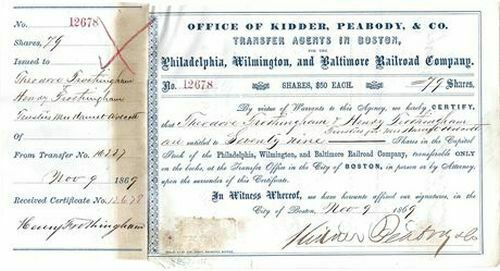 No. 12678
Shares, 79
Issued to
Theodore Frothingham
Henry Frothingham
Trustees
Of
From Transfer No. 10227
Nov 9 1869
Received Certificate No. 12678
Henry Frothingham
OFFICE OF KIDDER, PEABODY, & CO.
TRANSFER AGENTS IN BOSTON,
FOR THE
Philadelphia, Wilmington, and Baltimore Railroad Company.
No. 12678 SHARES, $50 EACH. 79 Shares.
By virtue of Warrants to this Agency, we hereby CERTIFY,
that Theodore Frothingham & Henry Frothingham
Trustees for
are entitled to Seventy nine Shares in the Capital
Stock of the Philadelphia, Wilmington, and Baltimore Railroad Company, transferable ONLY
on the books, at the Transfer Office in the City of BOSTON, in person or by Attorney,
upon the surrender of this Certificate.
In Witness Whereof, we have hereunto affixed our signatures, in the
City of Boston, Nov 9 1869
Kidder Peabody & Co